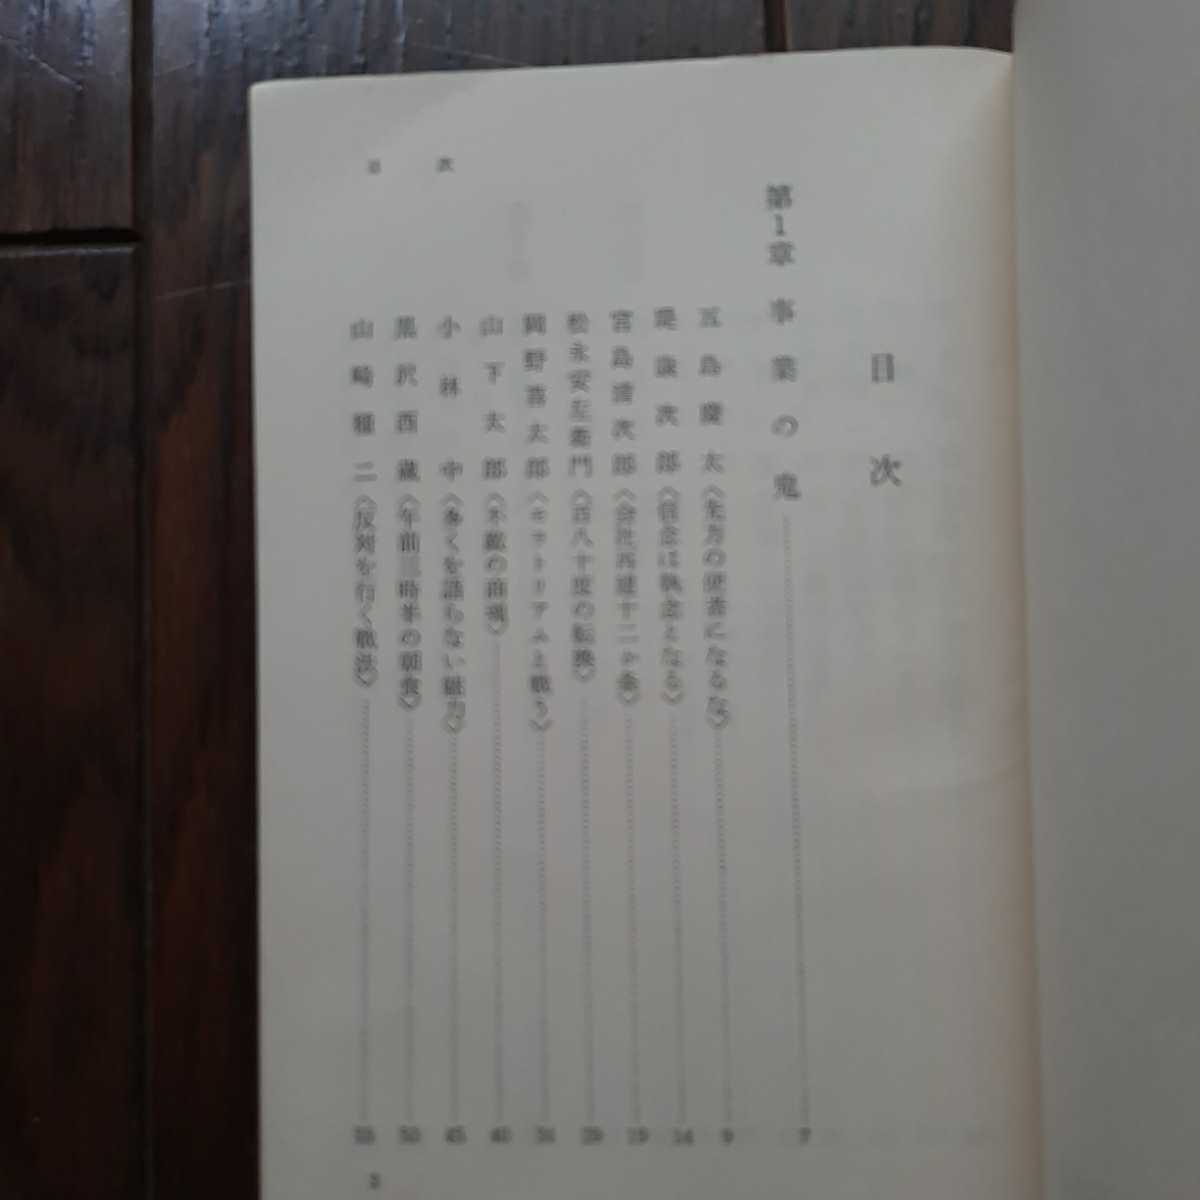 目次
第1章 事業の鬼 7
五島慶太〈生方の便書になるな〉 9
是康次郎〈信念は執念となる〉 14
宮島清次郎〈会社再建十二ヵ条〉 19
松永安左衛門〈百八十度の転換〉 29
岡野喜太郎〈モラトリアムと戦う〉
山下太郎〈不敵の商魂〉 40
小林中〈多くを語らない魅力〉 45
黒沢酉蔵〈午前三時半の朝食〉 50
山崎種二〈反対を行く戦法〉 55
目次
3